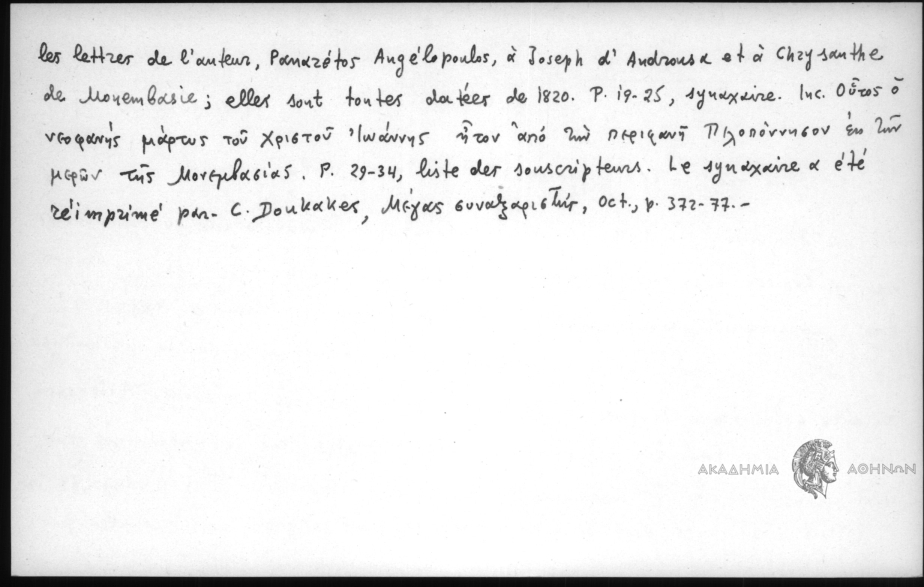 les lettres de l'auteur, Panarétos Angélopoulos, à Joseph d'Androusa et à Chrysanthe
de Monembasie; elles sont toutes datées de 1820. P. 19-25, synaxaire. Inc. Οὗτος ὁ
νεοφανὴς μάρτυς τοῦ Χριστοῦ Ἰωάννης ἦτον ἀπὸ τὴν περιφανῆ Πελοπόννησον ἐκ τῶν
μερῶν τῆς Μονεμβασίας. P. 29-34, liste des souscripteurs. Le synaxaire a été
réimprimé par C. Doukakes, Μέγας συναξαριστής, Oct., p. 372-77.-
ΑΚΑΔΗΜΙΑ ΑΘΗΝΩΝ